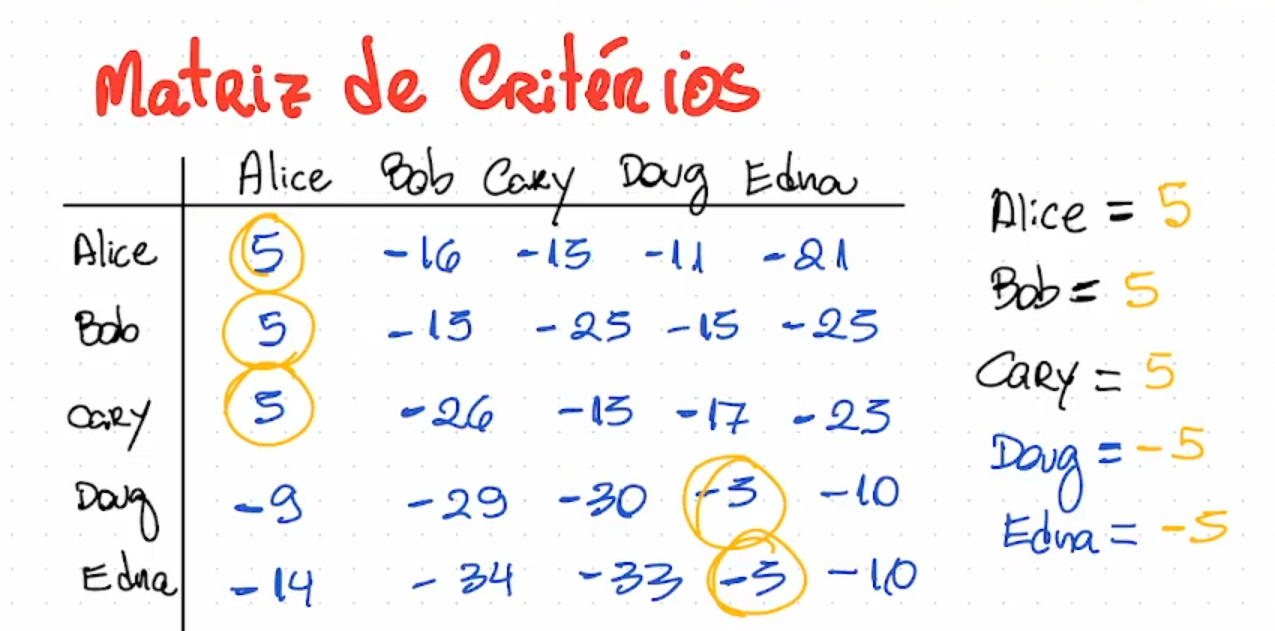 Matriz de Critérios
Alice Bob Cary Doug Edna
Alice 5 -16 -15 -11 -21
Bob 5 -15 -25 -15 -25
Cary 5 -26 -15 -17 -25
Doug -9 -29 -30 -5 -10
Edna -14 -34 -33 -5 -10
Alice = 5
Bob = 5
Cary = 5
Doug = -5
Edna = -5